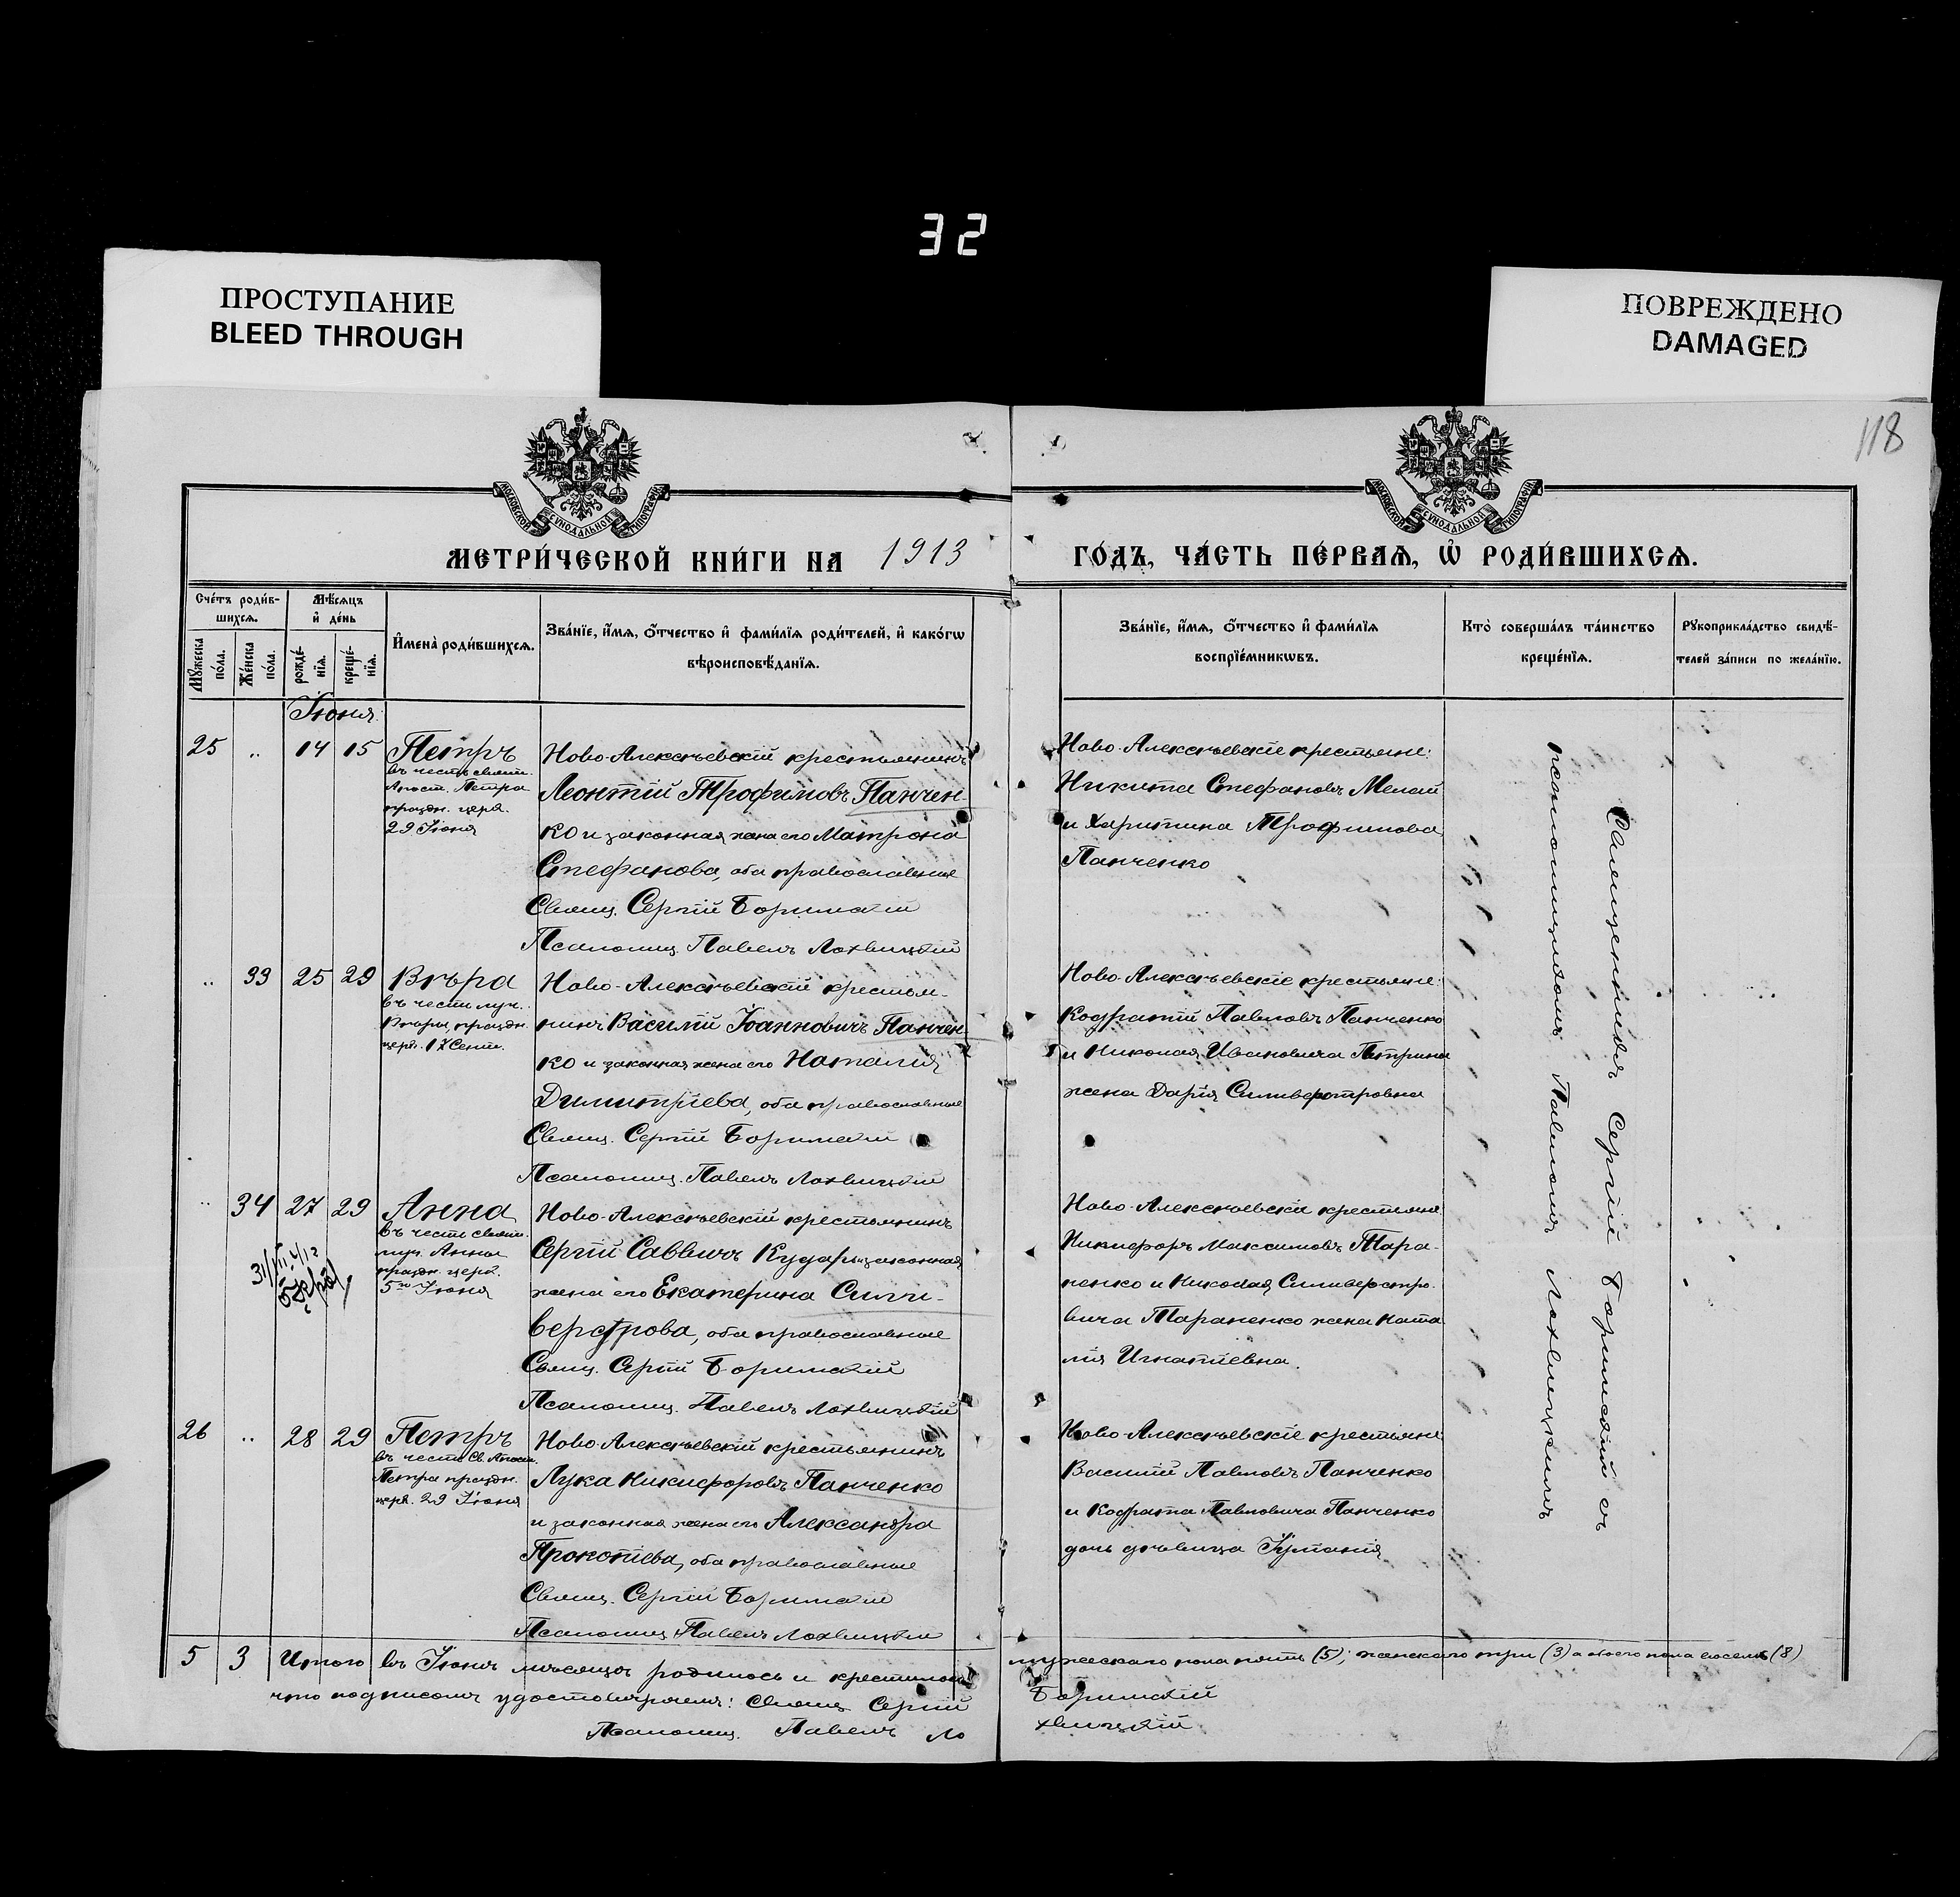 32
ПРОСТУПАНИЕ
BLEED THROUGH
ПОВРЕЖДЕНО
DAMAGED
118
МОСКОВСКОЙ СУНОДАЛЬНОЙ ТИПОГРАФІИ
МОСКОВСКОЙ СУНОДАЛЬНОЙ ТИПОГРАФІИ
МЕТРИ́ЧЕСКОЙ КНИ́ГИ НА 1913
ГО́ДЪ, ЧА́СТЬ ПЕ́РВАѦ, Ѡ҆ РОДИ́ВШИХСѦ.
Сче́тъ роди́в-
шихсѧ.
Мѣ́сѧцъ
и҆ де́нь
Мꙋ́жеска
по́ла.
Же́нска
по́ла.
рожде́-
нїѧ.
креще́-
нїѧ.
И҆мена̀ роди́вшихсѧ.
Зва́нїе, и҆́мѧ, ѻ҆́тчество и҆ фами́лїѧ роди́телей, и҆ како́гѡ
вѣроисповѣ́данїѧ.
Зва́нїе, и҆́мѧ, ѻ҆́тчество и҆ фами́лїѧ
воспрїе́мникѡвъ.
Кто̀ соверша́лъ та́инство
креще́нїѧ.
Рꙋкоприкла́дство свидѣ́-
телей за́писи по жела́нїю.
Іюня
25 .. 14 15 Петръ
въ честь свят.
Апост. Петра
праздн. церк.
29 Іюня
Ново-Алексѣевскій крестьянинъ
Леонтій Трофимовъ Панчен-
ко и законная жена его Матрона
Стефанова, оба православные
Свящ. Сергій Боримскій
Псаломщ. Павелъ Лохвицкій
Ново-Алексѣевскіе крестьяне:
Никита Стефановъ Мелай
и Харитина Трофимова
Панченко
.. 33 25 29 Вѣра
въ честь муч.
Вѣры, праздн.
церк. 17 Сент.
Ново-Алексѣевскій крестья-
нинъ Василій Іоанновичъ Панчен-
ко и законная жена его Наталія
Димитріева, оба православные
Свящ. Сергій Боримскій
Псаломщ. Павелъ Лохвицкій
Ново-Алексѣевскіе крестьяне:
Кодратій Павловъ Панченко
и Николая Ивановича Петрина
жена Дарія Сильверстровна
.. 34 27 29 Анна
въ честь свят.
муч. Анны
праздн. церк.
5го Іюня
Ново-Алексѣевскій крестьянинъ
Сергій Саввичъ Кударь и законная
жена его Екатерина Силли-
верстрова, оба православные
Свящ. Сергій Боримскій
Псаломщ. Павелъ Лохвицкій
Ново-Алексѣевскіе крестьяне
Никифоръ Максимовъ Тара-
ненко и Николая Сильверстро-
вича Тараненко жена Ната
лія Игнатіевна.
26 .. 28 29 Петръ
въ честь Св. Апост.
Петра праздн.
церк. 29 Іюня
Ново-Алексѣевскій крестьянинъ
Лука Никифоровъ Панченко
и законная жена его Александра
Прокопіева, оба православные
Свящ. Сергій Боримскій
Псаломщ. Павелъ Лохвицкій
Ново-Алексѣевскіе крестьяне
Василій Павловъ Панченко
и Кодрата Павловича Панченко
дочь дѣвица Іуліанія
Священникъ Сергій Боримскій съ
псаломщикомъ Павломъ Лохвицкимъ
5 3 Итого въ Іюнѣ мѣсяцѣ родилось и крестилось
мужескаго пола пять (5); женскаго три (3) а обоего пола восемь (8)
что подписомъ удостовѣряемъ: Свящ. Сергій Боримскій
Псаломщ. Павелъ Лохвицкій